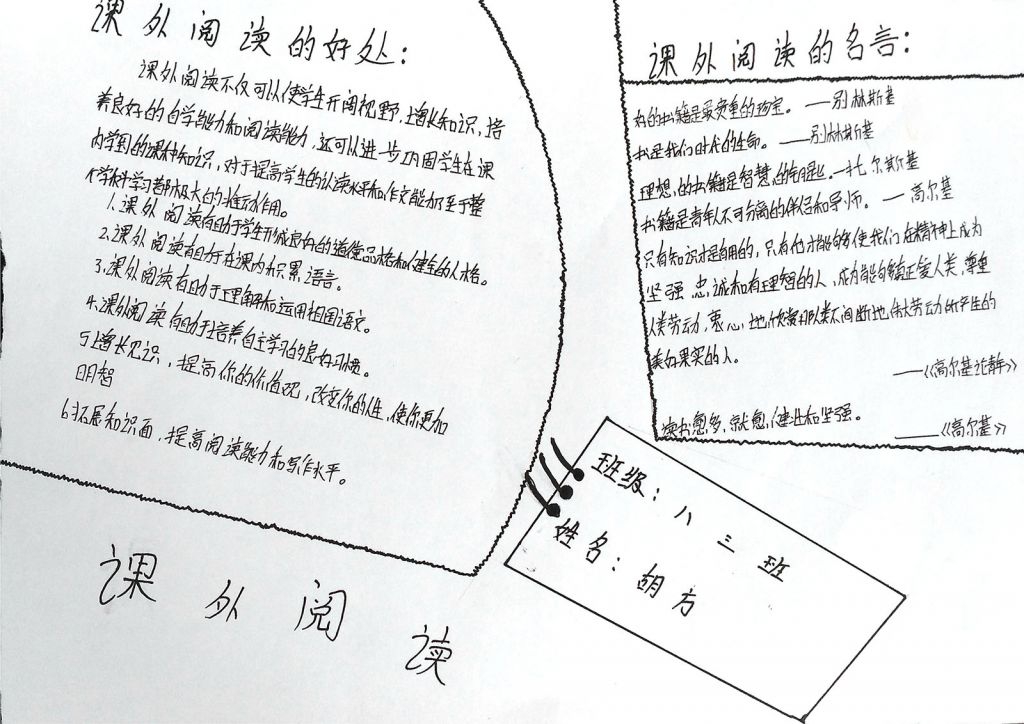 课外阅读的好处：
课外阅读不仅可以使学生开阔视野，增长知识，培
养良好的自学能力和阅读能力，还可以进一步巩固学生在课
内学到的课本知识，对于提高学生的认读水平和作文能力乃至于整
个学科学习都极大的推动作用。
1.课外阅读有助于学生形成良好的道德品格和健全的人格。
2.课外阅读有助于在课内积累语言。
3.课外阅读有助于理解和运用祖国语文。
4.课外阅读有助于培养自主学习的良好习惯。
5增长见识，提高你的价值观，改变你的人性，使你更加
明智
6拓展知识面，提高阅读能力和写作水平。
课外阅读
课外阅读的名言：
的书籍是最贵重的珍宝。——别林斯基
书是我们时代的生命。——别林斯基
理想的书籍是智慧的钥匙。—托尔斯基
书籍是青年人不可分离的伴侣和导师。—高尔基
只有知识才是有用的，只有它才能够使我们在精神上成为
坚强忠诚和有理智的人，成为能够真正爱人类，尊重
人类劳动，衷心地欣赏那人类不间断地伟大劳动所产生的
美好果实的人。
——《高尔基论青年》
读书愈多，就愈健壮和坚强。
——《高尔基》
班级：八三班
姓名：胡方